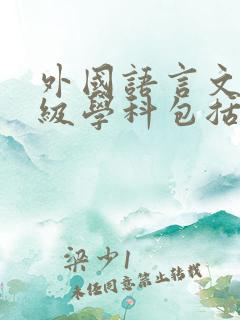 外國語言文
級學科包括
梁少1
未经同意禁止转载